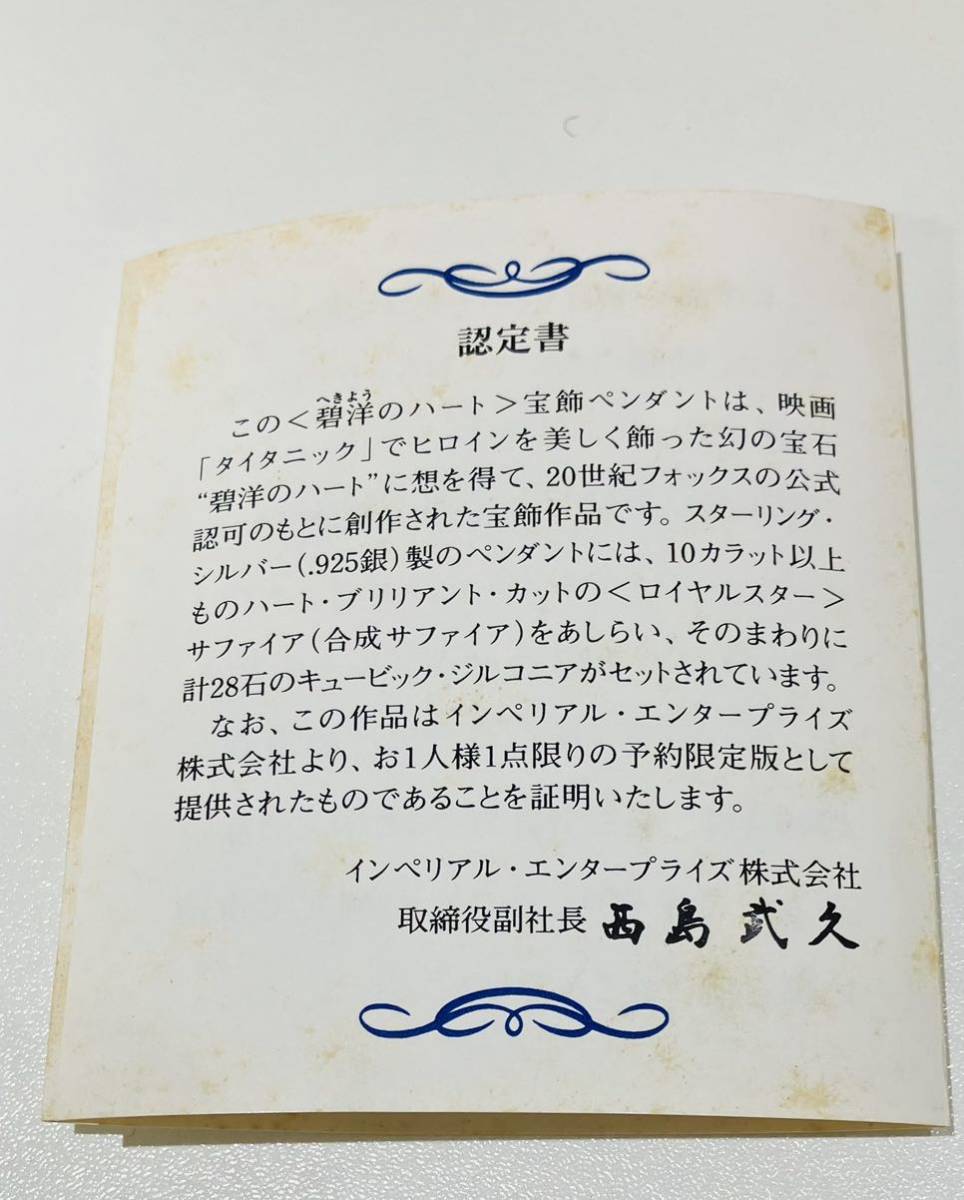 認定書
この＜碧洋のハート＞宝飾ペンダントは、映画
「タイタニック」でヒロインを美しく飾った幻の宝石
“碧洋のハート”に想を得て、20世紀フォックスの公式
認可のもとに創作された宝飾作品です。スターリング・
シルバー(.925銀)製のペンダントには、10カラット以上
ものハート・ブリリアント・カットの＜ロイヤルスター＞
サファイア(合成サファイア)をあしらい、そのまわりに
計28石のキュービック・ジルコニアがセットされています。
なお、この作品はインペリアル・エンタープライズ
株式会社より、お1人様1点限りの予約限定版として
提供されたものであることを証明いたします。
インペリアル・エンタープライズ株式会社
取締役副社長 西島武久